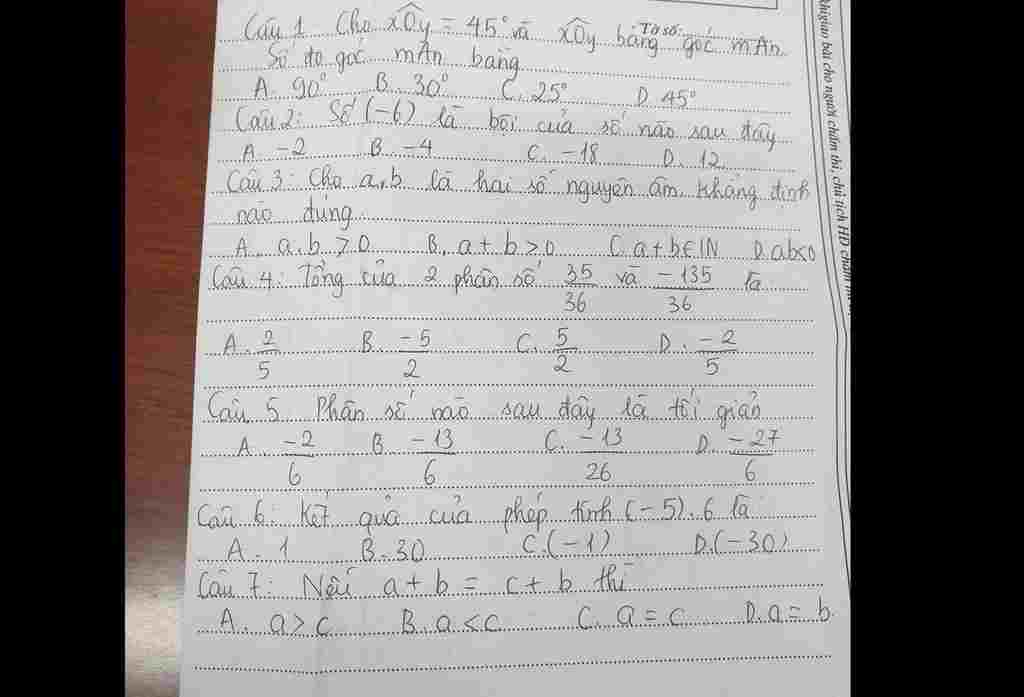 Tờ số:
Câu 1 Cho xOy = 45° và xOy bằng góc mAn.
Số đo góc mAn bằng
A. 90° B. 30° C. 25° D. 45°
Câu 2: Số (-6) là bội của số nào sau đây
A. -2 B. -4 C. -18 D. 12
Câu 3: Cho a, b là hai số nguyên âm. Khẳng định
nào đúng
A. a.b > 0 B. a + b > 0 C. a + b ∈ IN D. ab<0
Câu 4: Tổng của 2 phân số 35/36 và -135/36 là
A. 2/5 B. -5/2 C. 5/2 D. -2/5
Câu 5. Phân số nào sau đây là tối giản
A. -2/6 B. -13/6 C. -13/26 D. -27/6
Câu 6: Kết quả của phép tính (-5).6 là
A. 1 B. 30 C. (-1) D. (-30)
Câu 7: Nếu a + b = c + b thì
A. a > c B. a < c C. a = c D. a = b
bài cho người chấm thi, chủ tịch HĐ chấm